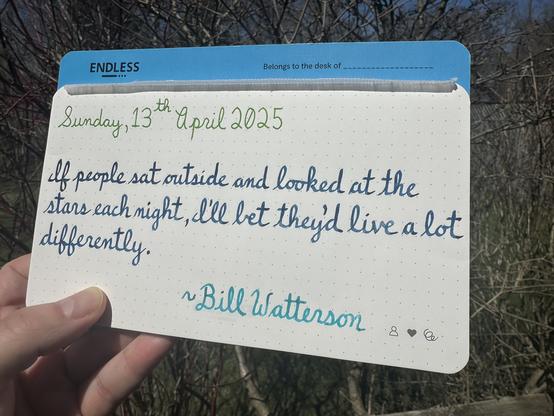 ENDLESS
Belongs to the desk of
Sunday, 13th April 2025
If people sat outside and looked at the
stars each night, I'll bet they'd live a lot
differently.
~Bill Watterson